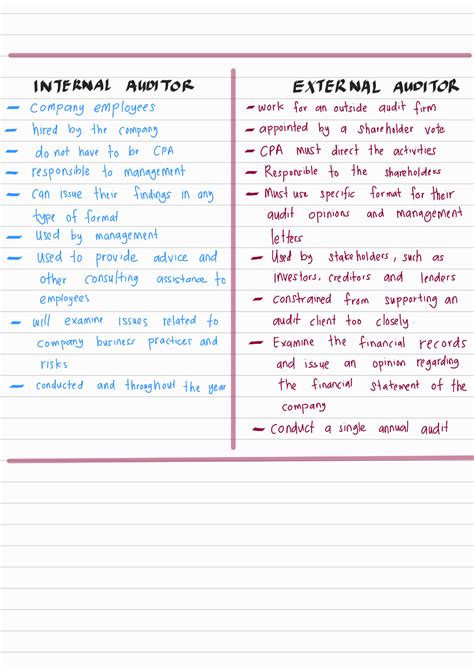 INTERNAL AUDITOR
– Company employees
– hired by the company
– do not have to be CPA
– responsible to management
– Can issue their findings in any
type of format
– Used by management
– Used to provide advice and
other consulting assistance to
employees
– will examine issues related to
company business practices and
risks
– conducted and throughout the year
EXTERNAL AUDITOR
– work for an outside audit firm
– appointed by a shareholder vote
– CPA must direct the activities
– Responsible to the shareholders
– Must use specific format for their
audit opinions and management
letters
– Used by stakeholders, such as
investors, creditors and lenders
– constrained from supporting an
audit client too closely
– Examine the financial records
and issue an opinion regarding
the financial statement of the
company
– Conduct a single annual audit